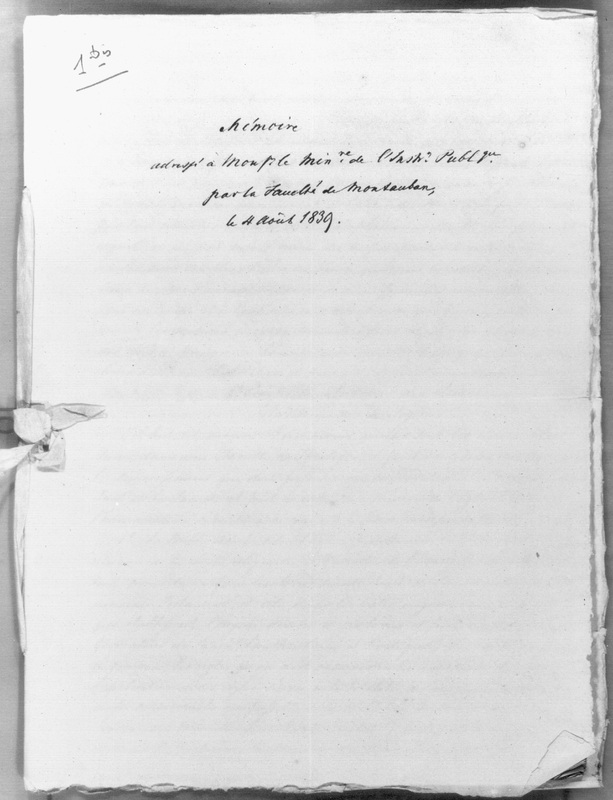 1 bis
Mémoire
adressé à Monsr. le Minre. de l'Instrn. Publique.
par la Faculté de Montauban,
le 4 Août 1839.